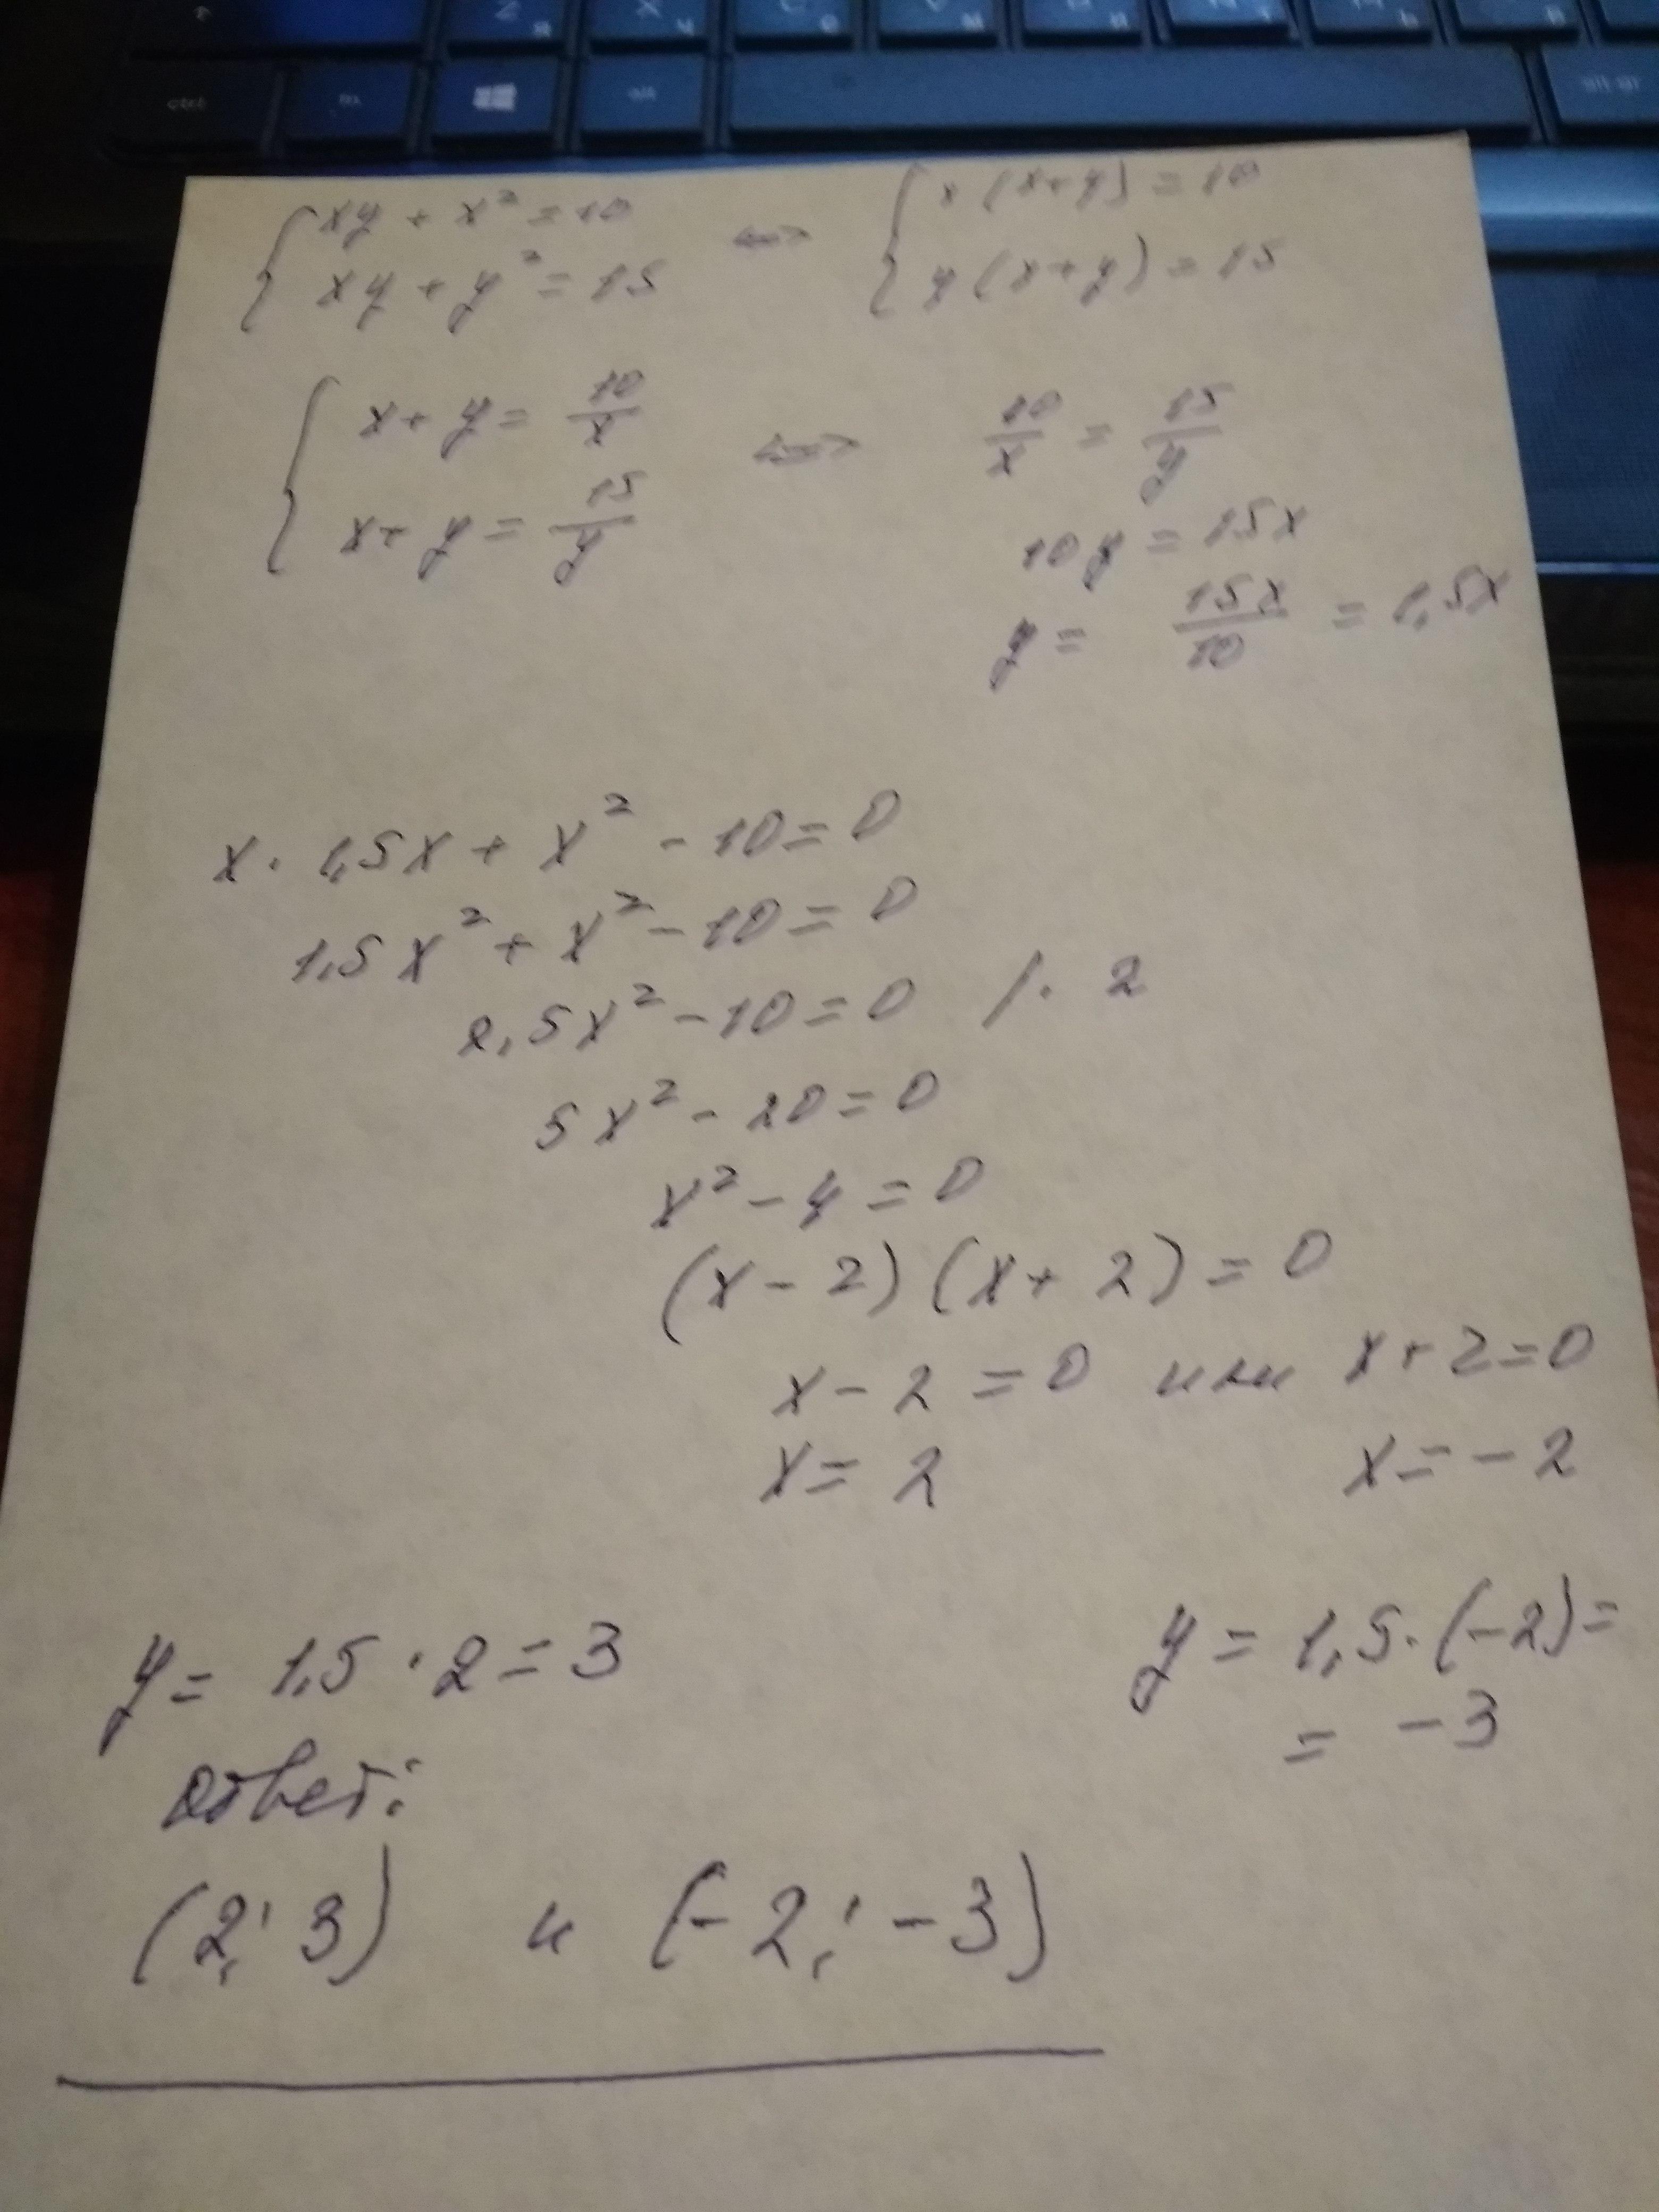 { xy + x² = 10 <=> { x (x+y) = 10
xy + y² = 15 y (x+y) = 15
{ x + y = 10/x <=> 10/x = 15/y
x + y = 15/y 10y = 15x
y = 15x/10 = 1,5x
x · 1,5x + x² - 10 = 0
1,5x² + x² - 10 = 0
2,5x² - 10 = 0 / · 2
5x² - 20 = 0
x² - 4 = 0
(x - 2) (x + 2) = 0
x - 2 = 0 или x + 2 = 0
x = 2 x = - 2
y = 1,5 · 2 = 3 y = 1,5 · (-2) =
= - 3
Ответ:
(2; 3) и (-2; -3)